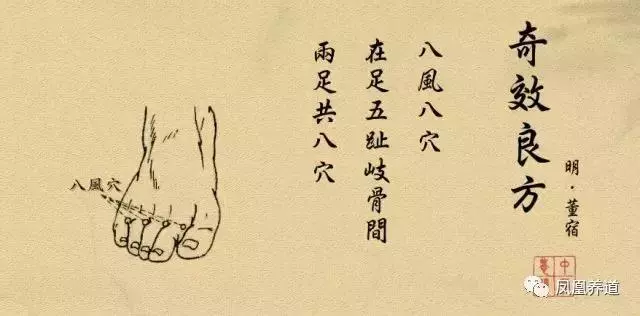 奇效良方
明·董宿
八風八穴
在足五趾岐骨間
兩足共八穴
八風穴
凤凰养道